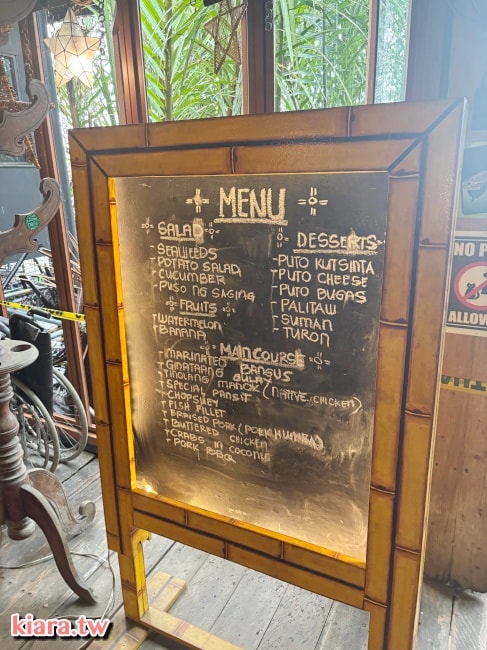 MENU
SALAD
- SEAWEEDS
- POTATO SALAD
- CUCUMBER
- PUSO NG SAGING
FRUITS
- WATERMELON
- BANANA
DESSERTS
- PUTO KUTSINTA
- PUTO CHEESE
- PUTO BUGAS
- PALITAW
- SUMAN
- TURON
MAIN COURSE
- MARINATED BANGUS
- GINATAANG GULAY
- TINOLANG MANOK (NATIVE CHICKEN)
- SPECIAL PANSIT
- CHOPSUEY
- FISH FILLET
- BRAISED PORK (PORK HUMBA)
- BUTTERED CHICKEN
- CRABS IN COCONUT
- PORK
NO
ALLOW
kiara.tw